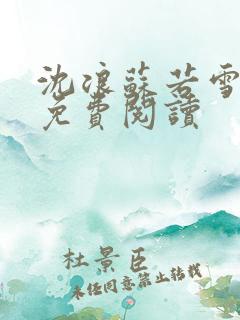 沈浪蘇若雪
免費閱讀
杜景臣
未经同意禁止转载